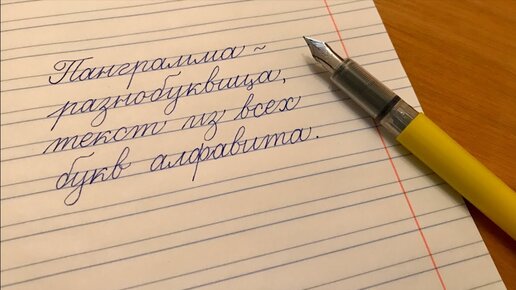 Панграмма ~
разнобуквица,
текст из всех
букв алфавита.